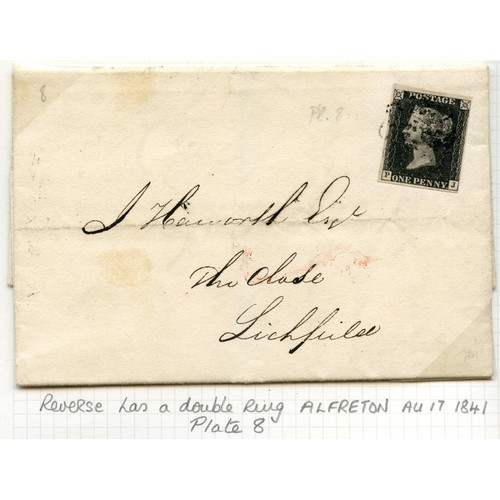 8
Pl. 8
POSTAGE
P ONE PENNY J
J Haworth Esqr
The Close
Lichfield
Reverse has a double Ring ALFRETON AU 17 1841
Plate 8